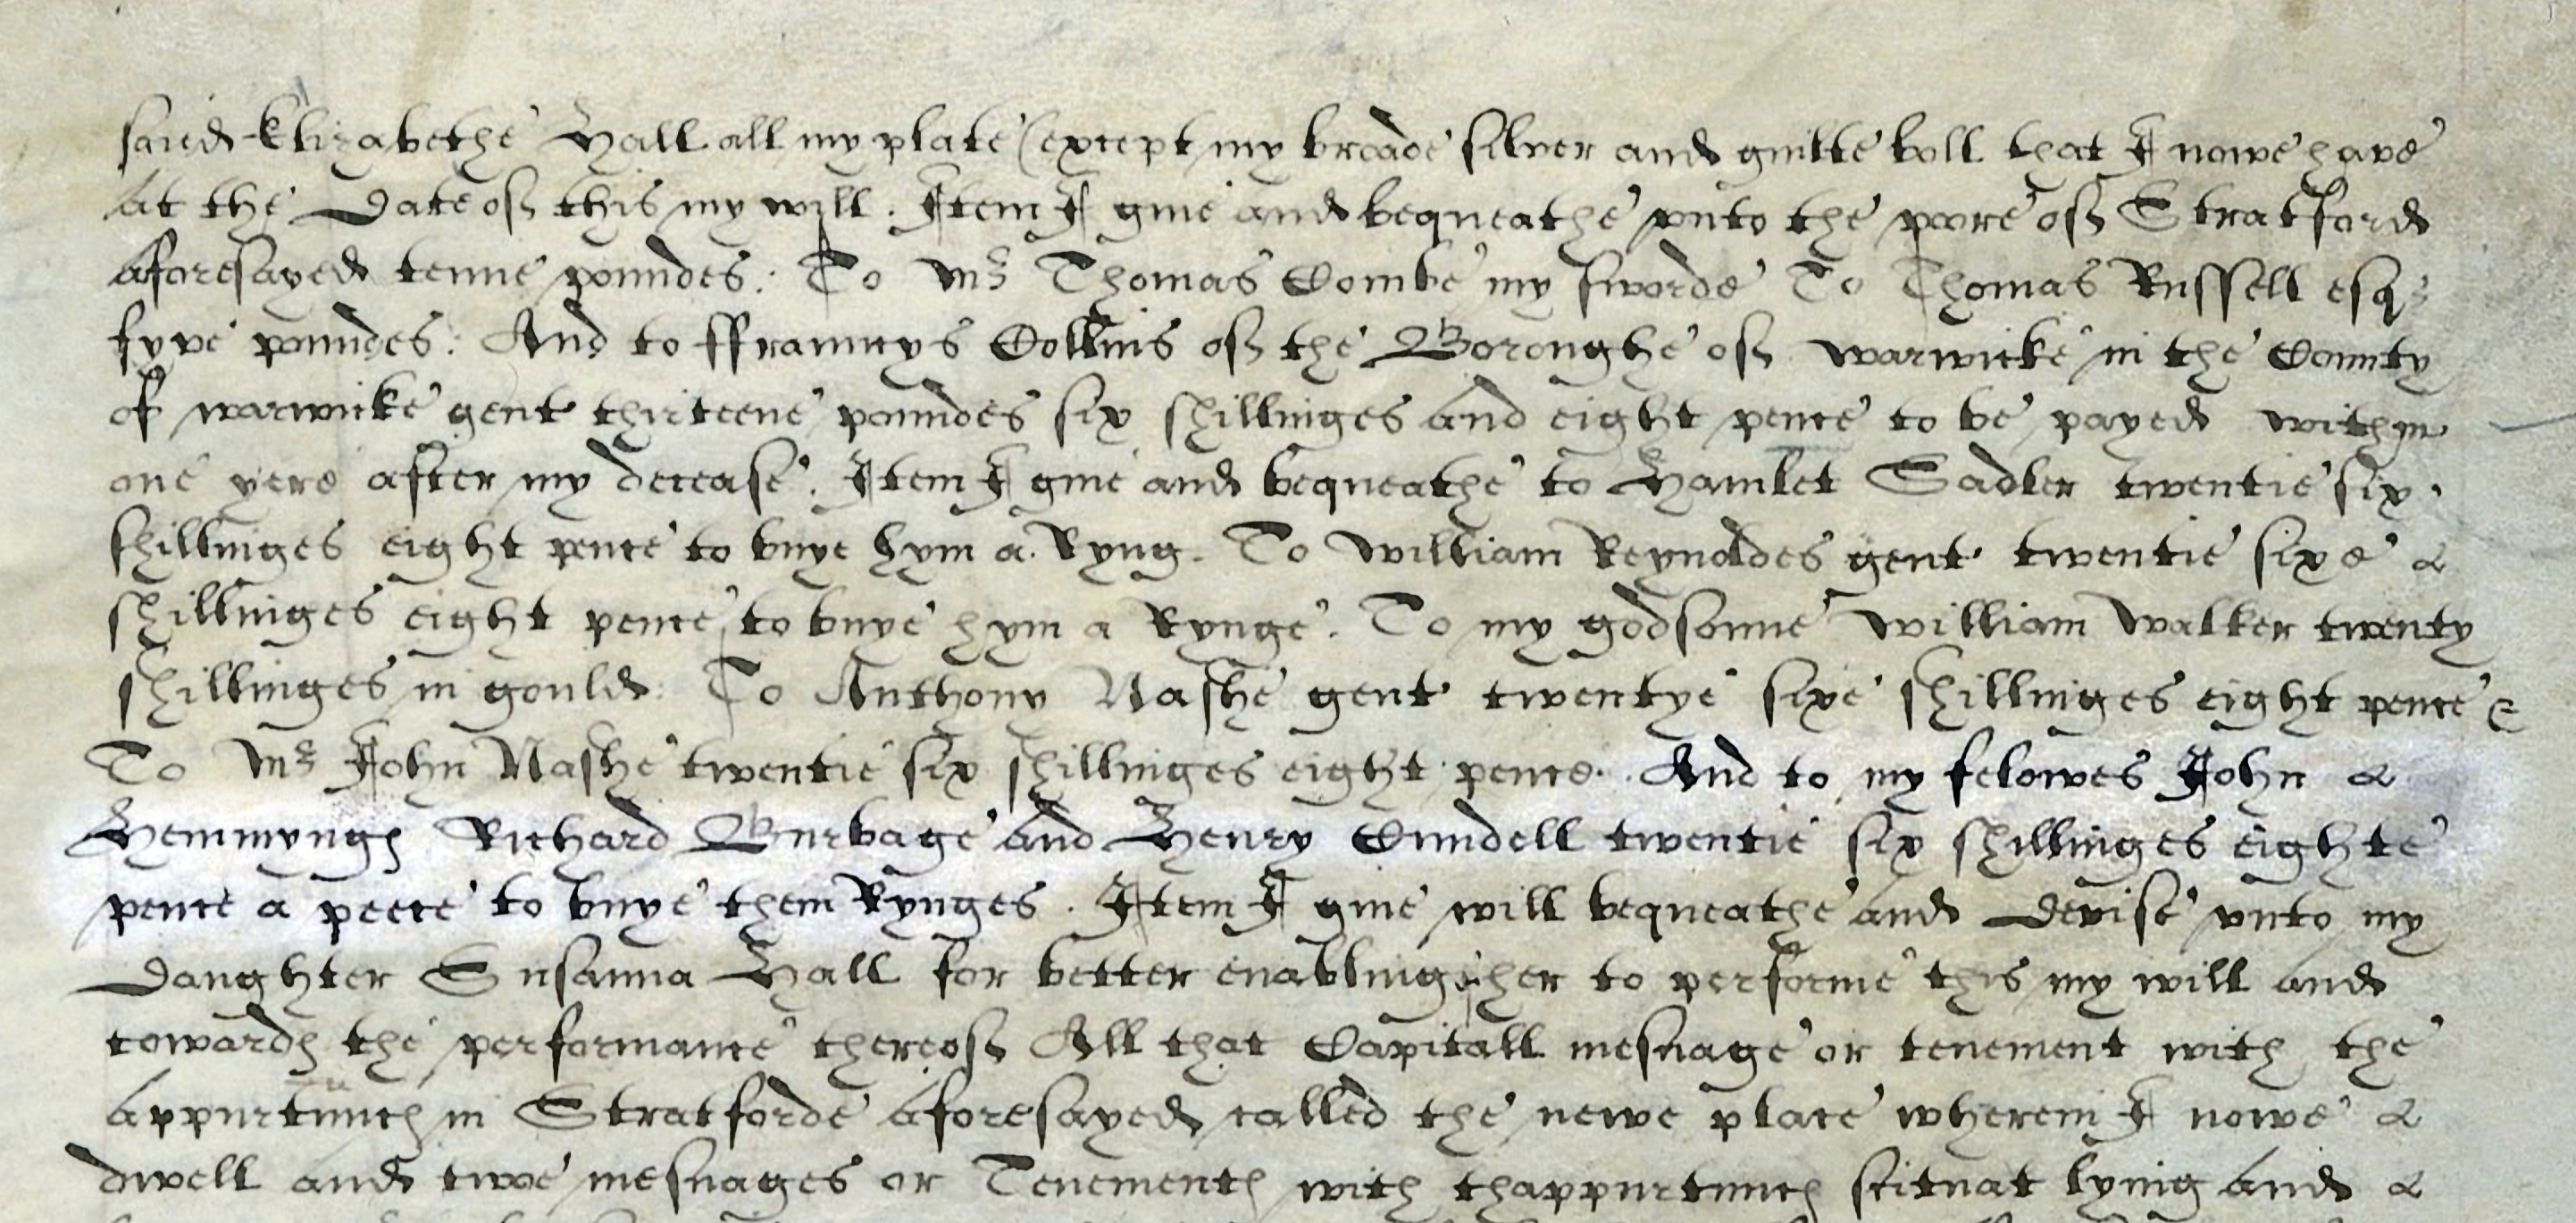 saied Elizabethe Hall all my plate (except my broade silver and guilte boll that I nowe have
At the Date of this my will. Item I give and bequeathe vnto the poore of Stratford
aforesayed tenne poundes: To Mr Thomas Combe my sworde To Thomas Russell esqr
fyve poundes: And to ffrauncys Collins of the Boroughe of warwicke in the County
of warwicke gent thirteene poundes six shillinges and eight pence to be payed within
one yere after my decease. Item I give and bequeathe to Hamlet Sadler twentie six
shillinges eight pence to buye hym a Ryng. To William Reynoldes gent twentie sixe &
shillinges eight pence to buye hym a Rynge. To my godsonne William Walker twenty
shillinges in gould: To Anthony Nashe gent twentye sixe shillinges eight pence &
To Mr John Nashe twentie six shillinges eight pence. And to my felowes John &
Hemmynges Richard Burbage and Henry Cundell twentie six shillinges eighte
pence a peece to buye them Rynges. Item I give will bequeathe and Devise vnto my
Daughter Susanna Hall for better enabling her to performe this my will and
towardes the performance thereof All that Capitall mesuage or tenement with the
appurtunces in Stratforde aforesayed called the newe place wherein I nowe &
dwell and twoe mesuages or Tenementes with thappurtunces scituat lying and &